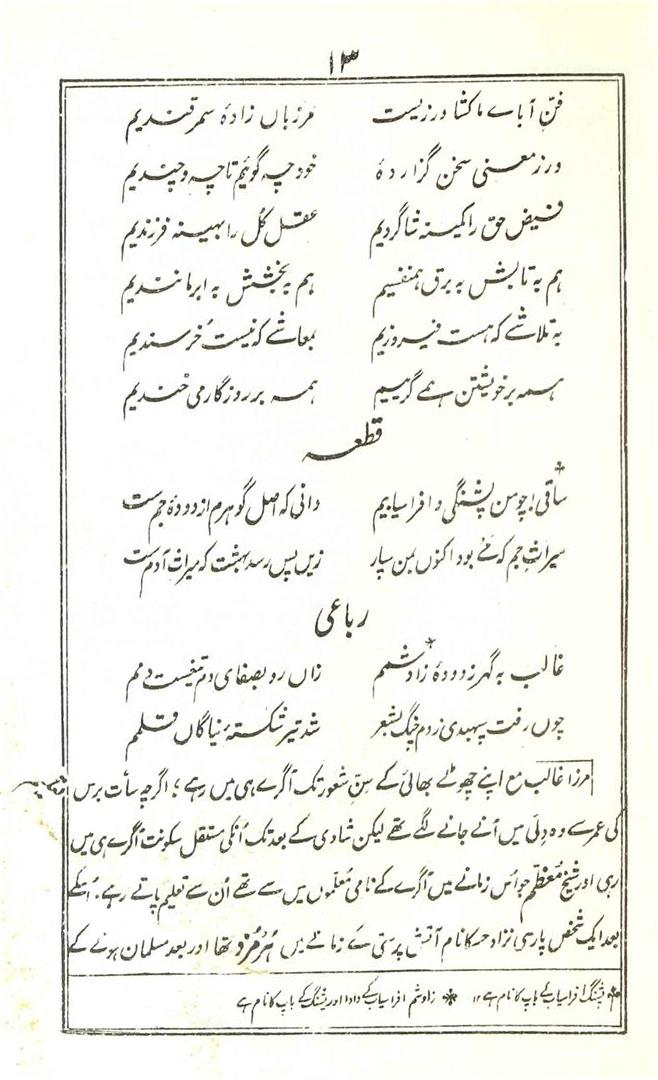 ۱۳
فنِّ آبائے ما کشاورزیست مرزباں زادۂ سمرقندیم
ور ز معنی سخن گزاردۂ خود چہ گوئیم تا چہ و چندیم
فیضِ حق را کمینہ شاگردیم عقلِ کُل را بہینہ فرزندیم
ہم بہ تابش بہ برق ہمنفسیم ہم بہ بخشش بہ ابر مانندیم
بہ تلاشے کہ ہست فیروزیم بمعاشے کہ نیست خُرسندیم
ہمہ بر خویشتن ہمے گرییم ہمہ بر روزگار می خندیم
قطعہ
ساقی! چو من پشنگی و افراسیابیم دانی کہ اصلِ گوہرم از دودۂ جم ست
میراثِ جم کہ مے بود اکنوں بمن سپار زیں پس رسد بہشت کہ میراثِ آدم ست
رباعی
غالب بہ گہر ز دودۂ زادشمم زاں رو بصفای دمِ تیغست دمم
چوں رفت سپہبدی ز دم چنگ بشعر شد تیرِ شکستۂ نیاگاں قلمم
مرزا غالب مع اپنے چھوٹے بھائی کے سنِّ شعور تک آگرے ہی میں رہے؛ اگرچہ سات برس
کی عمر سے وہ دِلّی میں آنے جانے لگے تھے لیکن شادی کے بعد تک اُنکی مستقل سکونت آگرے ہی میں
رہی اور شیخ مُعظّم جو اُس زمانے میں آگرے کے نامی مُعلّموں میں سے تھے اُن سے تعلیم پاتے رہے. اُسکے
بعد ایک شخص پارسی نژاد جسکا نام آتش پرستی کے زمانے میں ہُرمُزد تھا اور بعد مسلمان ہونے کے
پشنگ افراسیاب کے باپ کا نام ہے ۱۲ زادشم افراسیاب کے دادا اور پشنگ کے باپ کا نام ہے